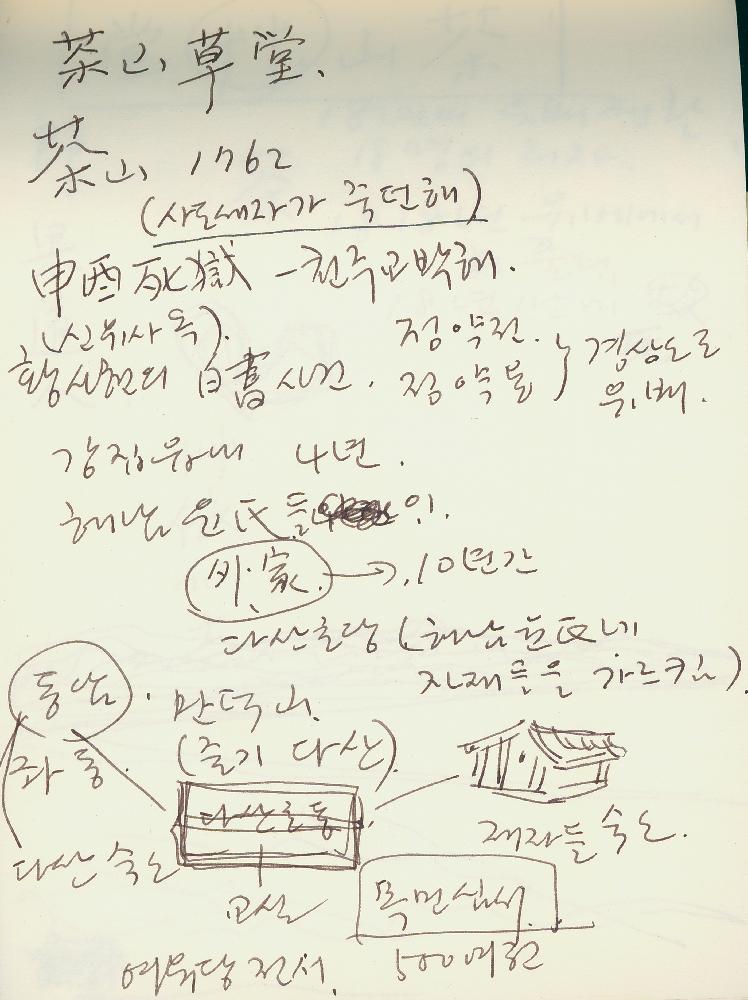 茶山草堂.
茶山 1762
(사도세자가 죽던해)
申酉死獄 - 천주교박해.
(신유사옥).
황사영의 白書사건.
정약전.
정약용
경상도로
유배.
강진유배 4년.
해남 윤氏들의.
外家 → 10년간
다산초당 (해남윤氏네
자재들을 가르키심).
동남.
만덕산.
(줄기 다산).
다산 숙소
교실
제자들 숙소.
목민심서
여유당 전서. 500여권